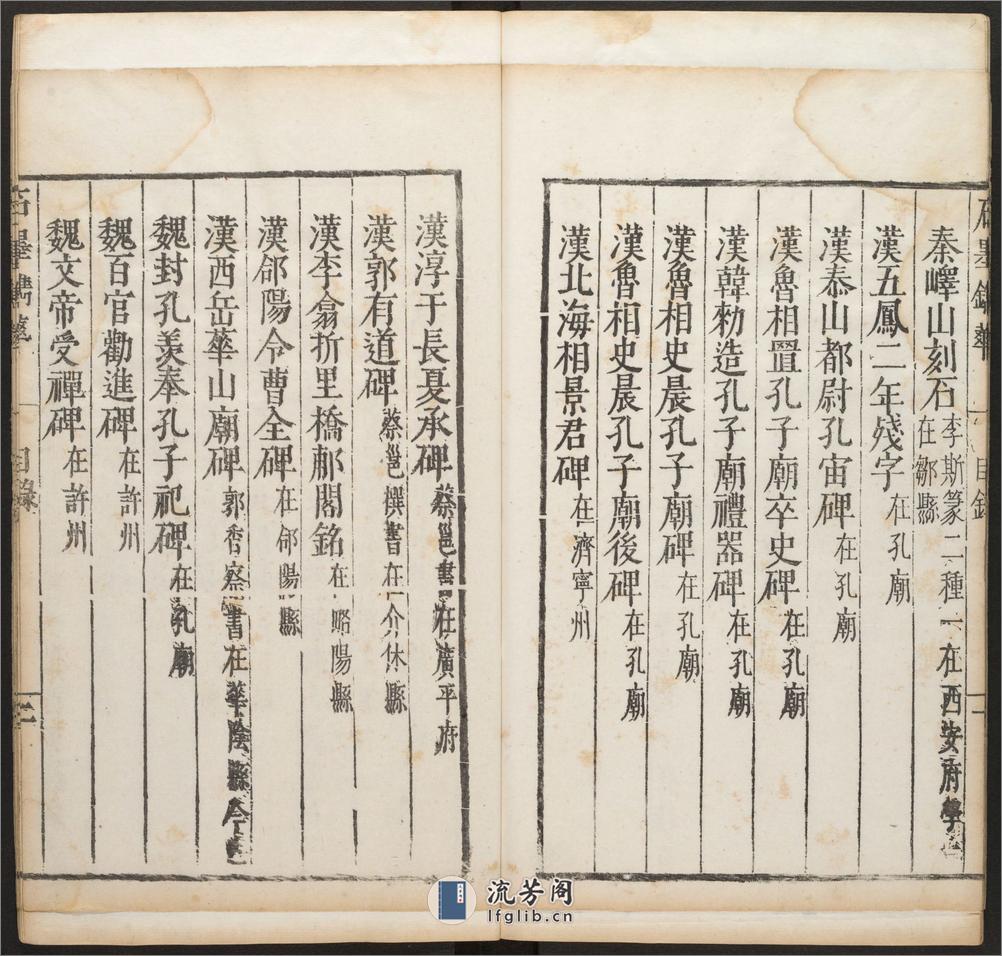 石墨鐫華 一 目録 二
秦嶧山刻石李斯篆二種一在西安府學一在鄒縣
漢五鳳二年殘字在孔廟
漢泰山都尉孔宙碑在孔廟
漢魯相置孔子廟卒史碑在孔廟
漢韓勑造孔子廟禮器碑在孔廟
漢魯相史晨孔子廟碑在孔廟
漢魯相史晨孔子廟後碑在孔廟
漢北海相景君碑在濟寧州
漢淳于長夏承碑蔡邕書在廣平府
漢郭有道碑蔡邕撰書在介休縣
漢李翕析里橋郙閣銘在略陽縣
漢郃陽令曹全碑在郃陽縣
漢西岳華山廟碑郭香察書在華陰縣今
魏封孔羨奉孔子祀碑在孔廟
魏百官勸進碑在許州
魏文帝受禪碑在許州
石墨鐫華 一 目錄
流芳阁
lfglib.cn